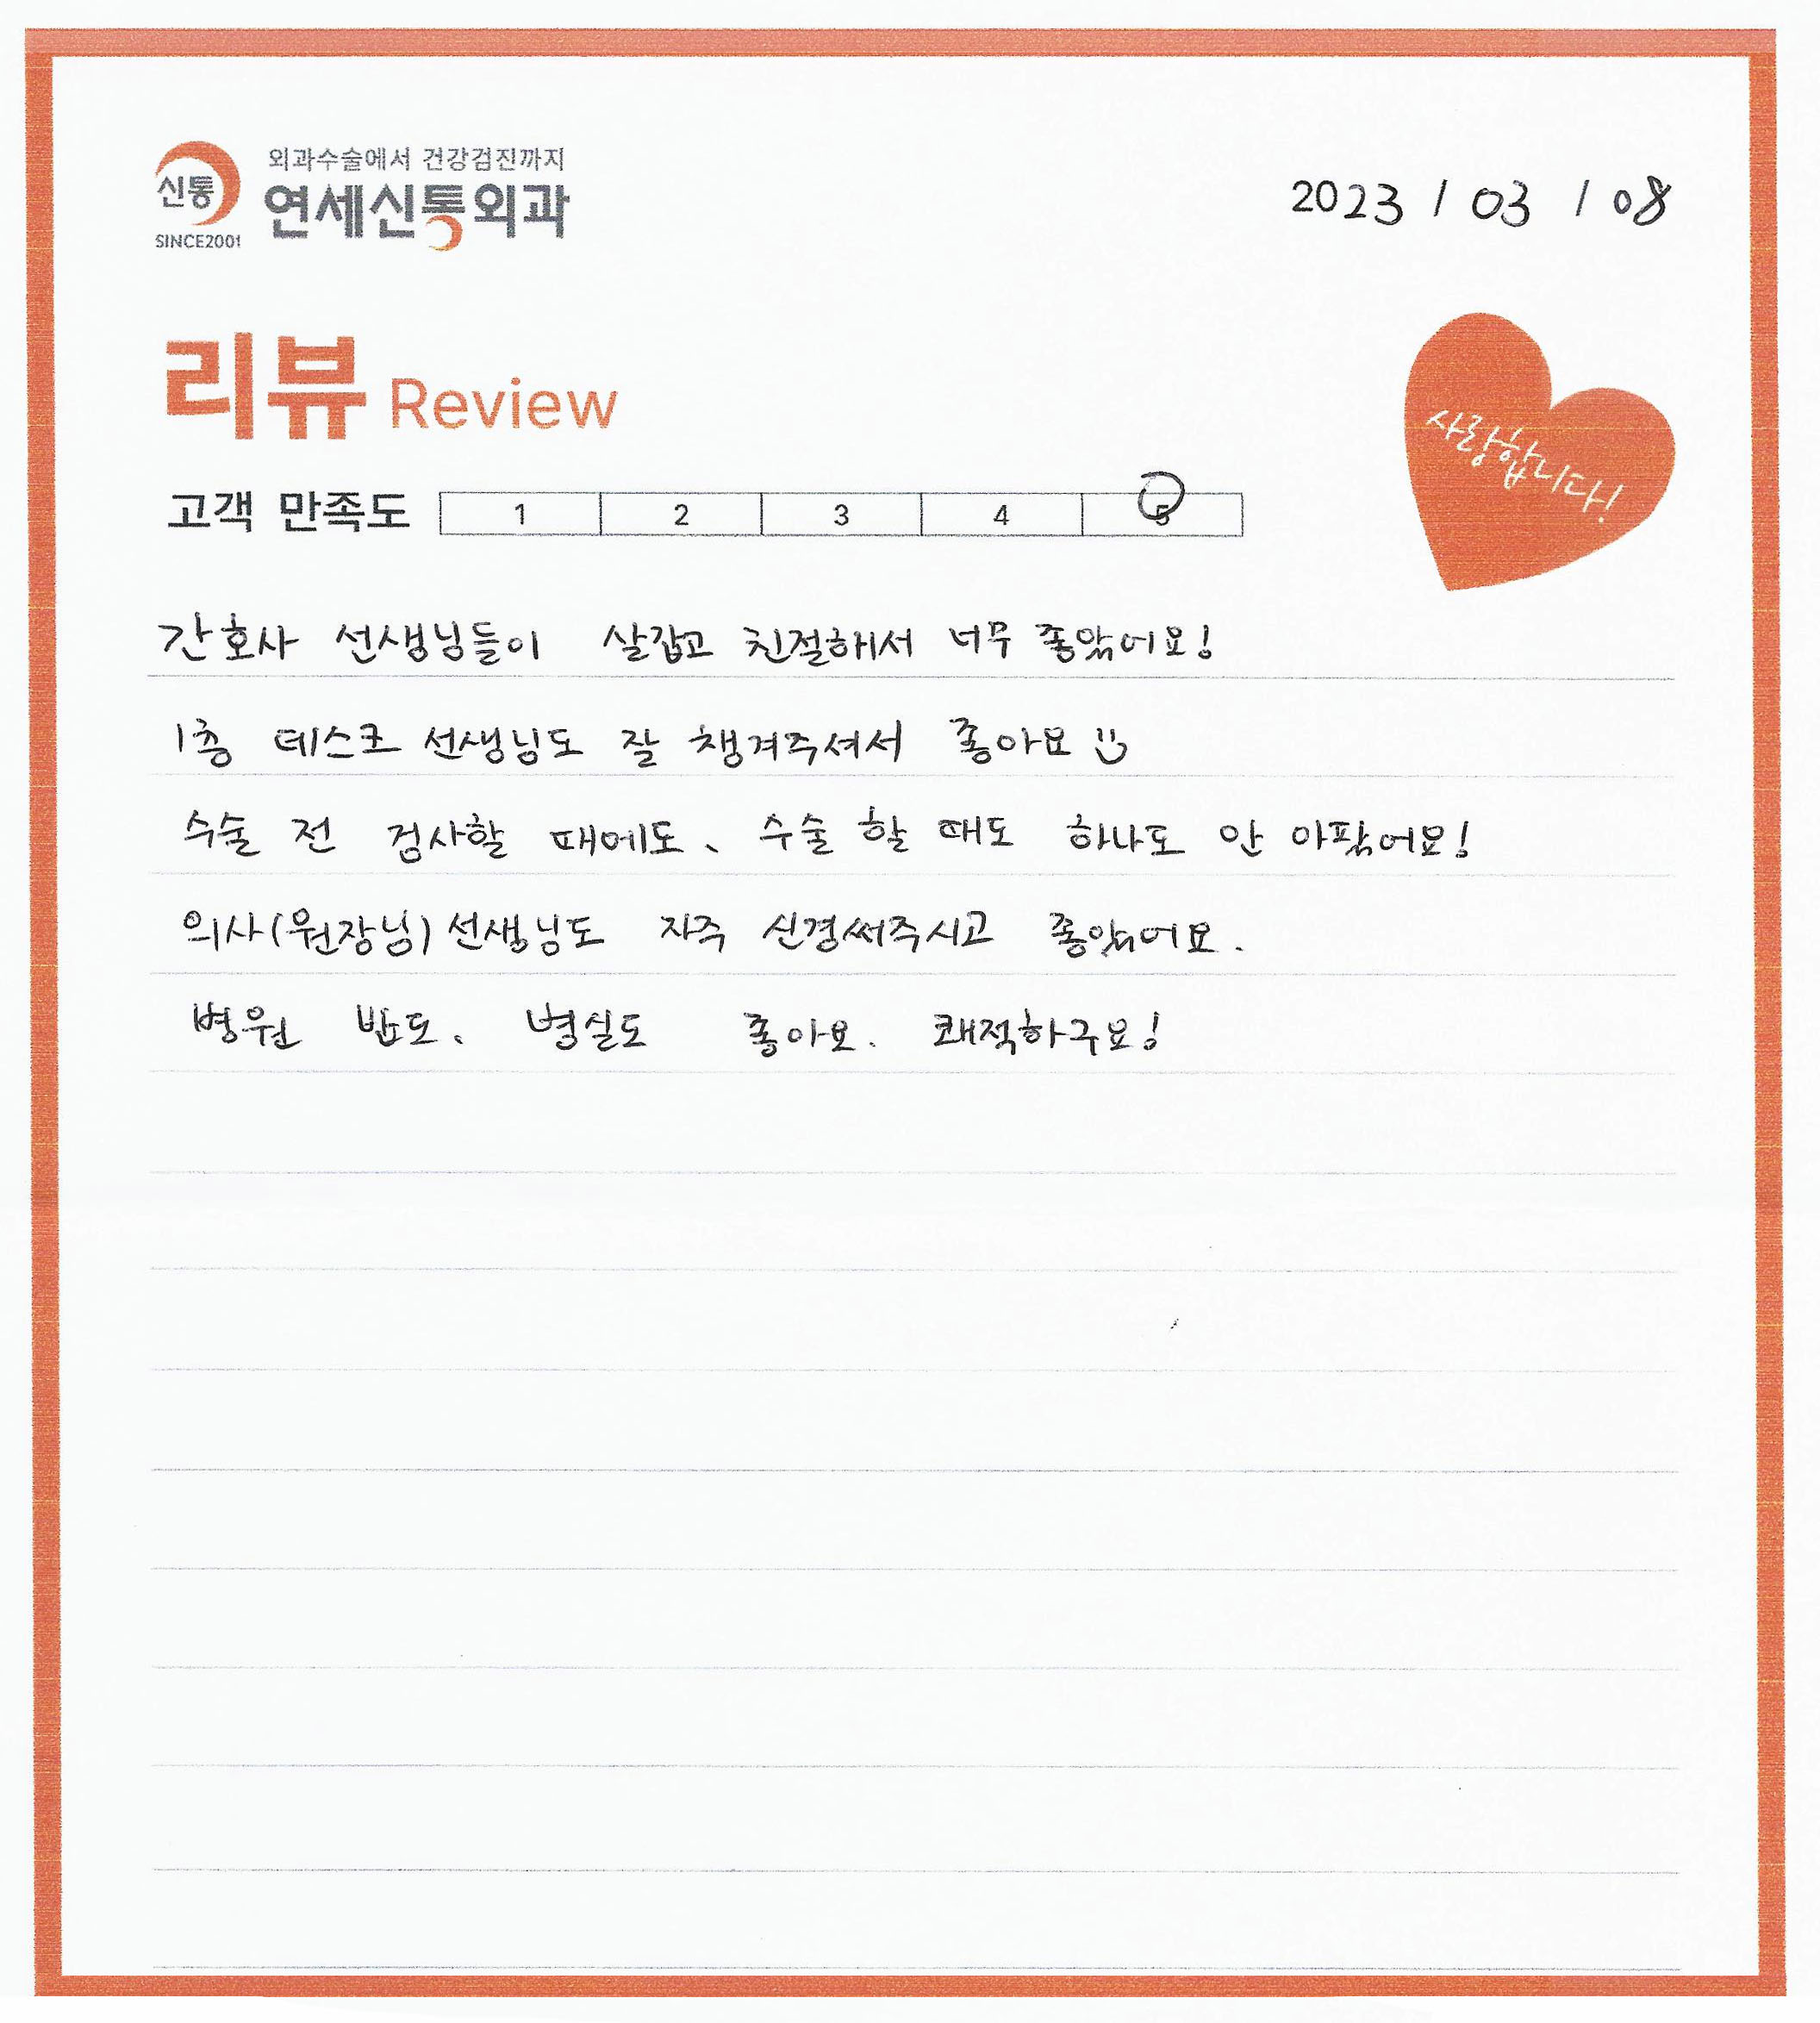 외과수술에서 건강검진까지
신통 연세신통외과
SINCE2001
2023 / 03 / 08
리뷰 Review
사랑합니다!
고객 만족도 1 2 3 4 5
간호사 선생님들이 살갑고 친절해서 너무 좋았어요!
1층 데스크 선생님도 잘 챙겨주셔서 좋아요
수술 전 검사할 때에도、 수술 할 때도 하나도 안 아팠어요!
의사(원장님) 선생님도 자주 신경써주시고 좋았어요.
병원 밥도、 병실도 좋아요. 쾌적하구요!